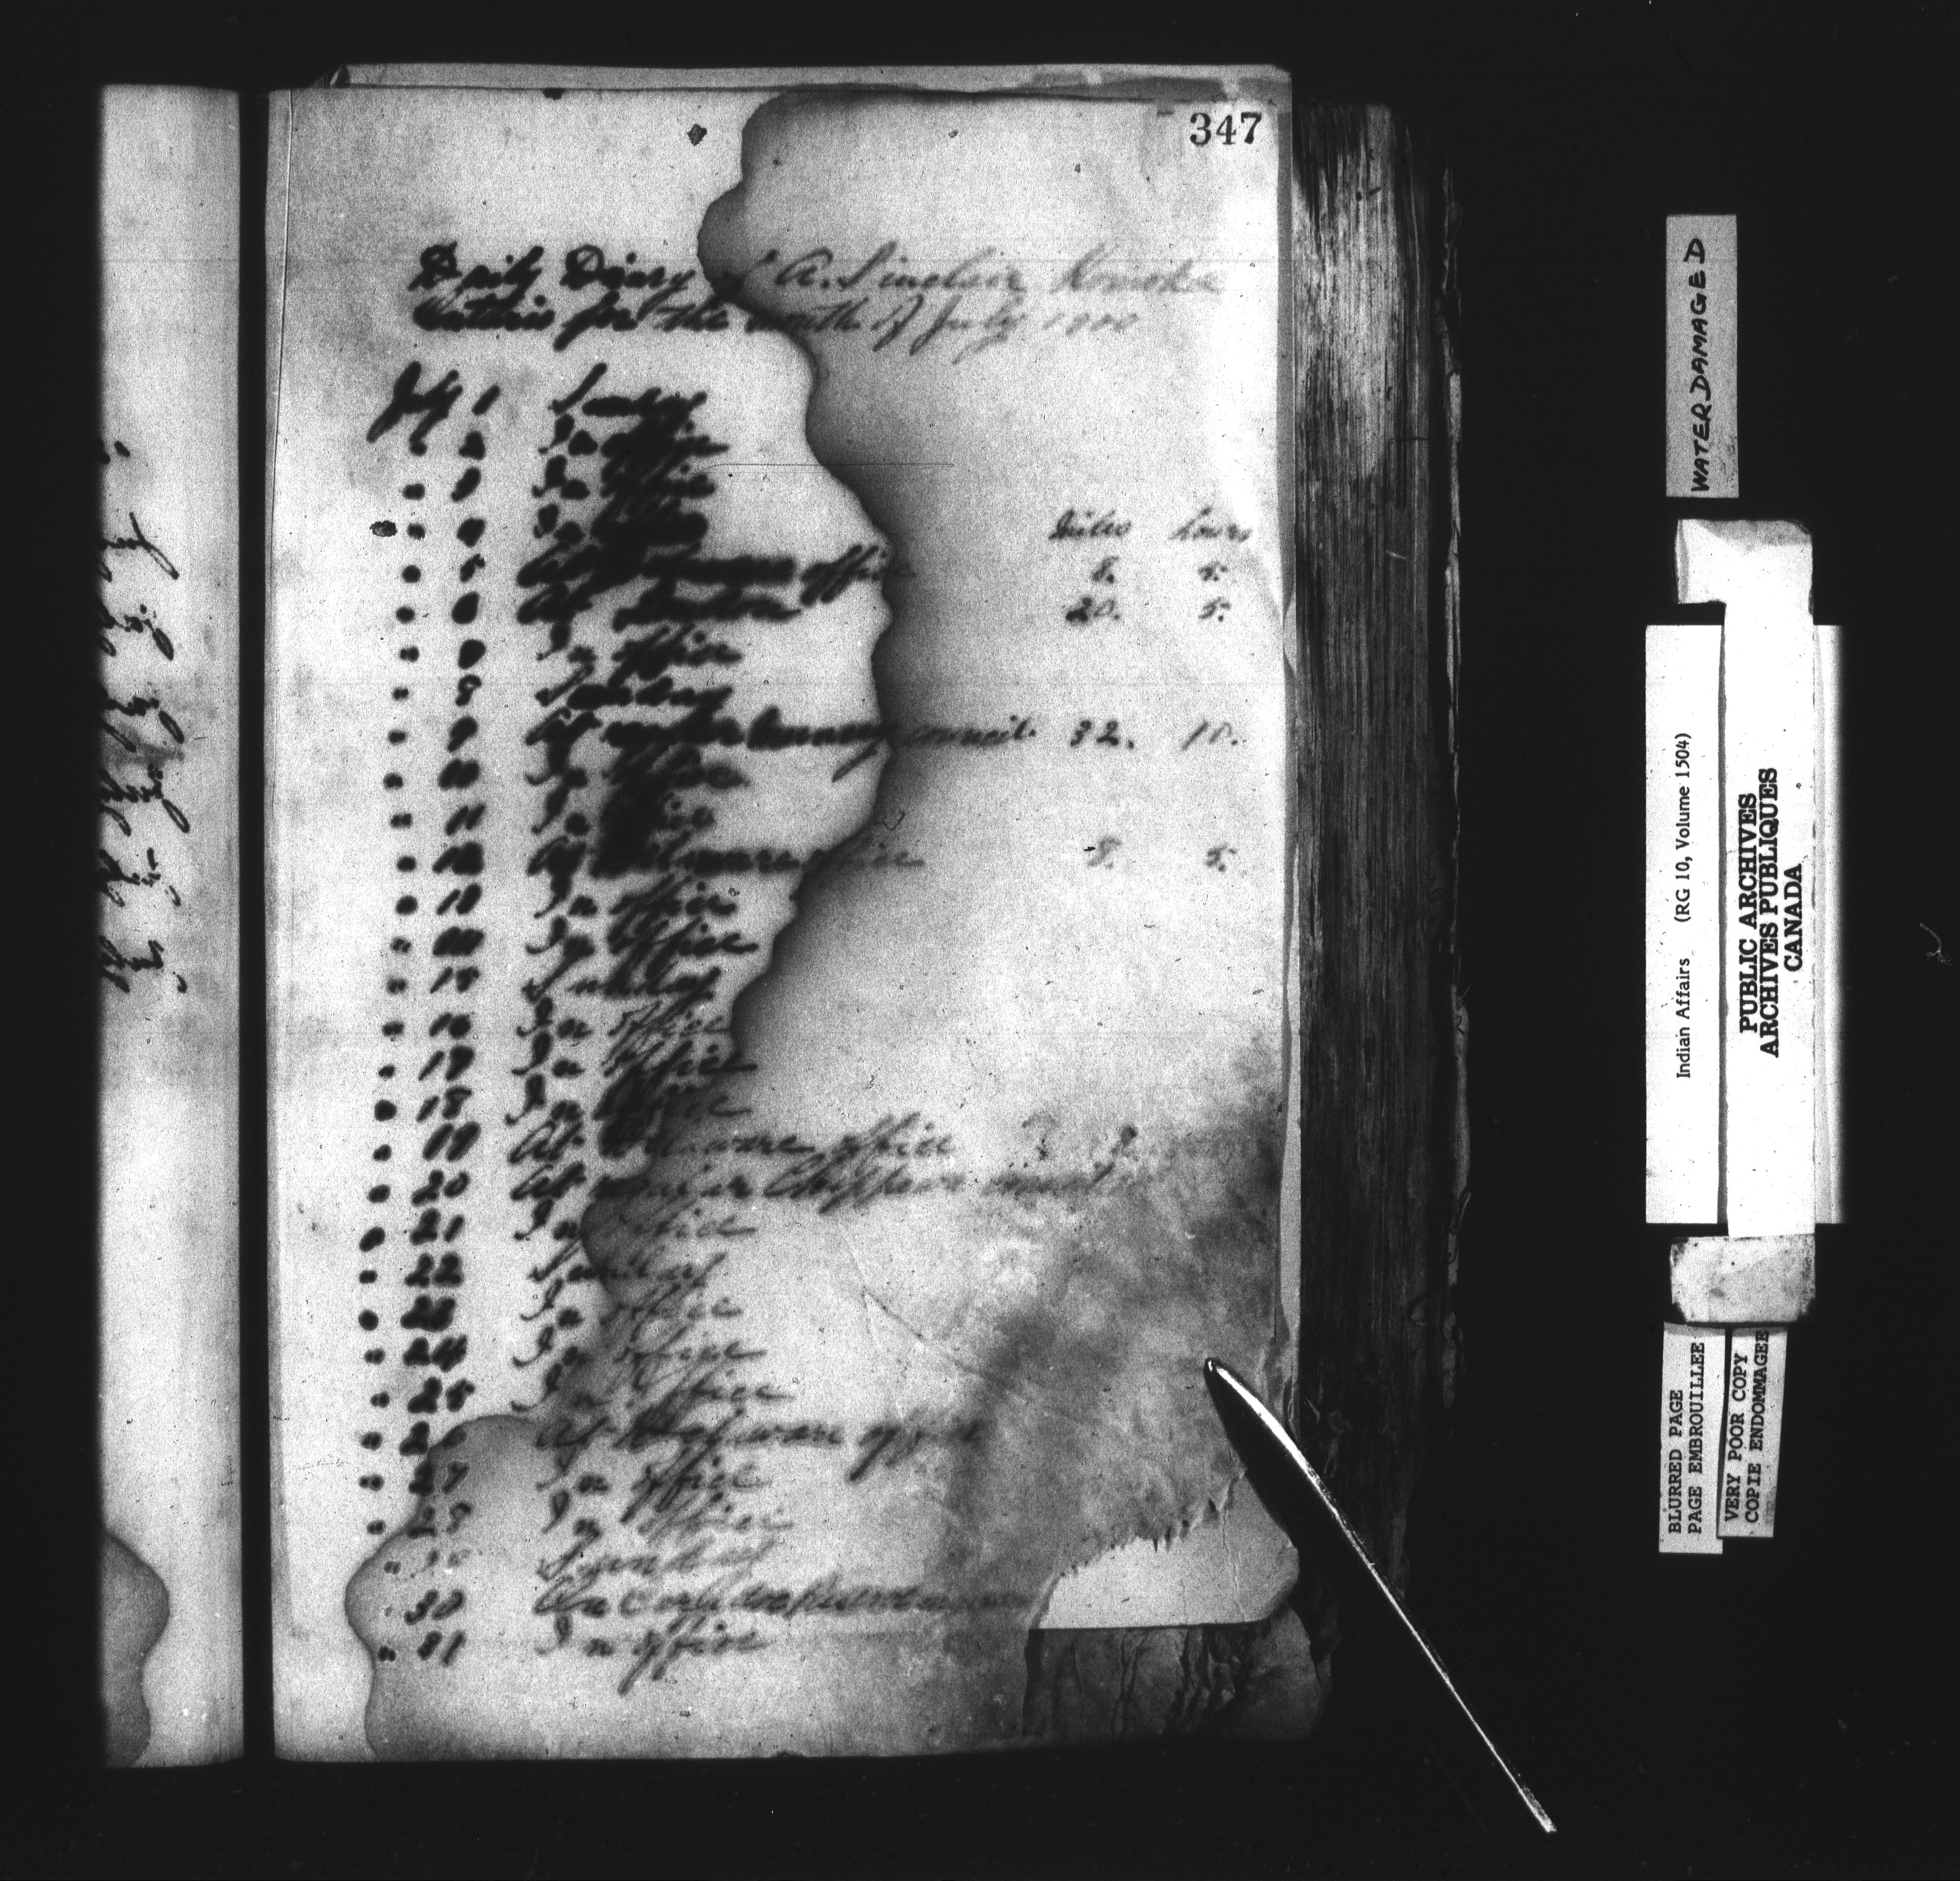 347
Daily Diary of A. Sinclair Komoka
Ontario for the month of July 1900
July 1 Sunday
" 2 In office
" 3 In office
" 4 In office Miles hours
" 5 At Delaware office 8. 5.
" 6 At London 20. 5.
" 7 In office
" 8 Sunday
" 9 At council 32. 10.
" 10 In office
" 11 In office
" 12 At Delaware office 8. 5.
" 13 In office
" 14 In office
" 15 Sunday
" 16 In office
" 17 In office
" 18 In office
" 19 At Delaware office 8
" 20 At Chippewa council
" 21 In office
" 22 Sunday
" 23 In office
" 24 In office
" 25 In office
" 26 At Delaware office
" 27 In office
" 28 In office
" Sunday
" 30 On Reserve
" 31 In office
WATER DAMAGED
Indian Affairs (RG 10, Volume 1504)
PUBLIC ARCHIVES
ARCHIVES PUBLIQUES
CANADA
BLURRED PAGE
PAGE EMBROUILLEE
VERY POOR COPY
COPIE ENDOMMAGEE